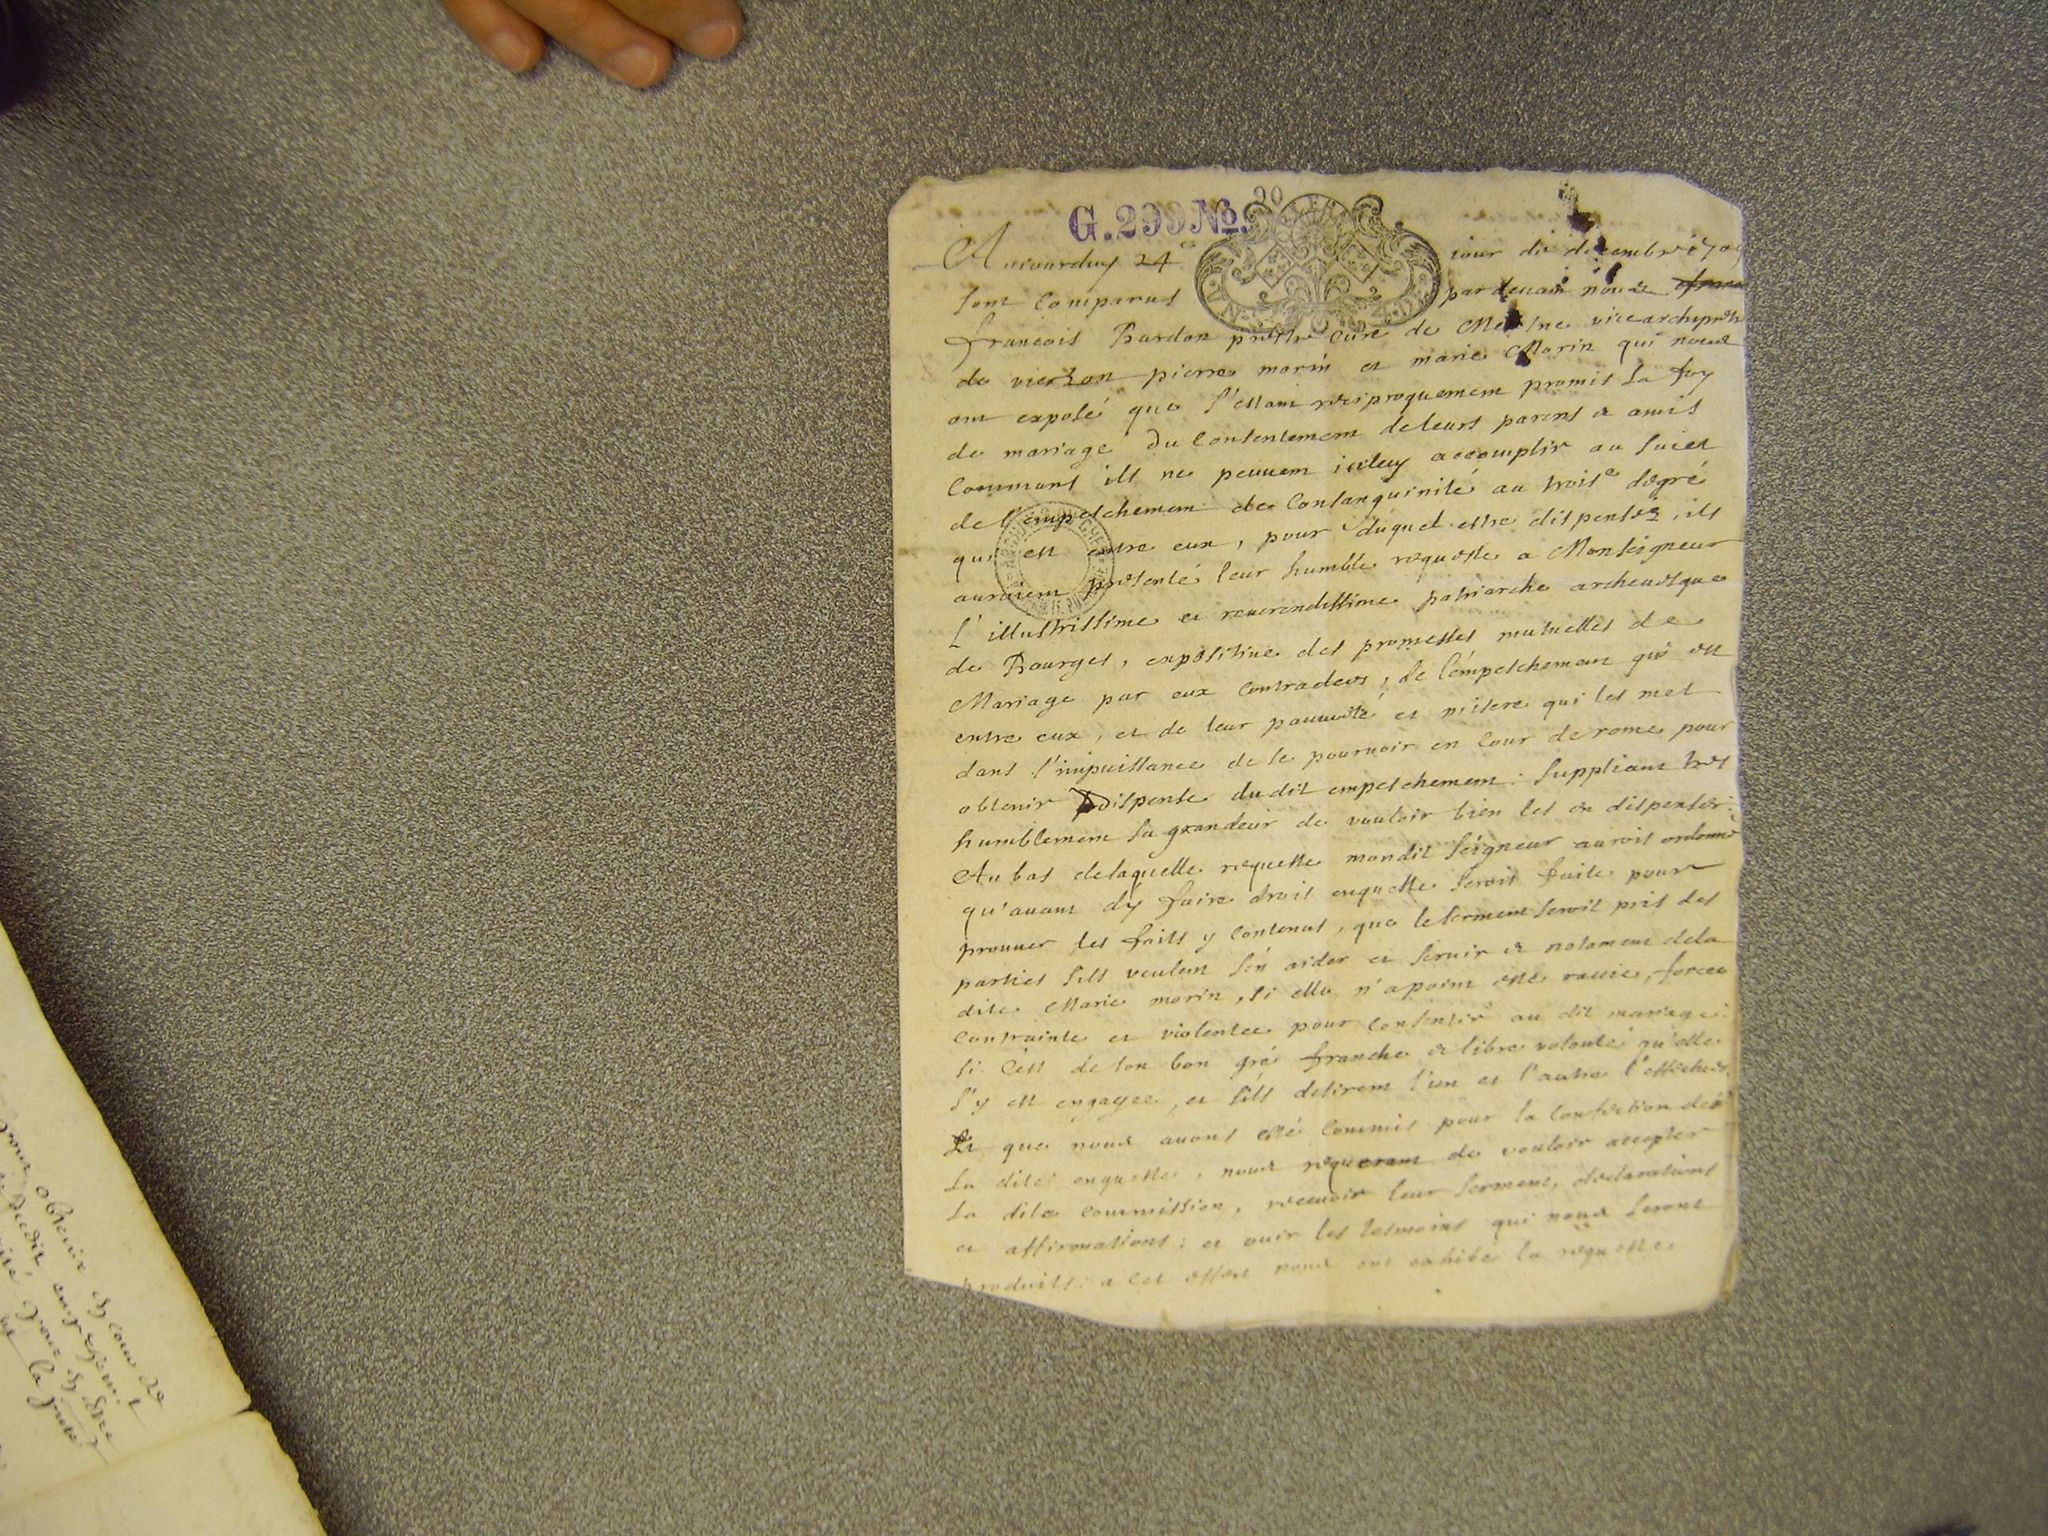 G.299 No. 90
Aujourduy 24 iour de decembre 170
sont comparus pardeuant nous
francois Bardon prestre curé de Mesne vicearchiprestre
de vierzon pierre morin et marie Morin qui nous
ont exposé que s'estant reciproquement promis la foy
de mariage du consentement de leurs parens et amis
communs ils ne peuuent iceluy accomplir au suiet
de l'empeschement de consanguinité au trois.e degré
qui est entre eux, pour duquel estre dispensez, ils
auroient presenté leur humble requeste a Monseigneur
L'illustrissime et reuerendissime patriarche archeuesque
de Bourges, expositiue des promesses mutuelles de
Mariage par eux contractees, de l'empeschement qui est
entre eux, et de leur pauureté et misere qui les met
dans l'impuissance de se pouruoir en cour de rome pour
obtenir dispense dudit empeschement: suppliant tres
humblement sa grandeur de vouloir bien les en dispenser:
Au bas de laquelle requeste mondit seigneur auroit ordonné
qu'auant dy faire droit enqueste seroit faite pour
prouuer les faits y contenus, que le serment seroit pris des
parties sils veulent s'en aider et seruir et notament de la
dite Marie morin, si elle n'a point esté rauie, forcee
contrainte et violentee pour consentir au dit mariage:
si c'est de son bon gré franche et libre volonté qu'elle
s'y est engagee, et sils desirent l'un et l'autre l'effectuer
Et que nous auons esté commis pour la confection de
la dite enqueste, nous requerant de vouloir accepter
la dite commission, receuoir leur serment, declarations
et affirmations: et ouir les tesmoins qui nous seront
produits: a cet effect nous ont exhibé la requeste
pour obtenir
la